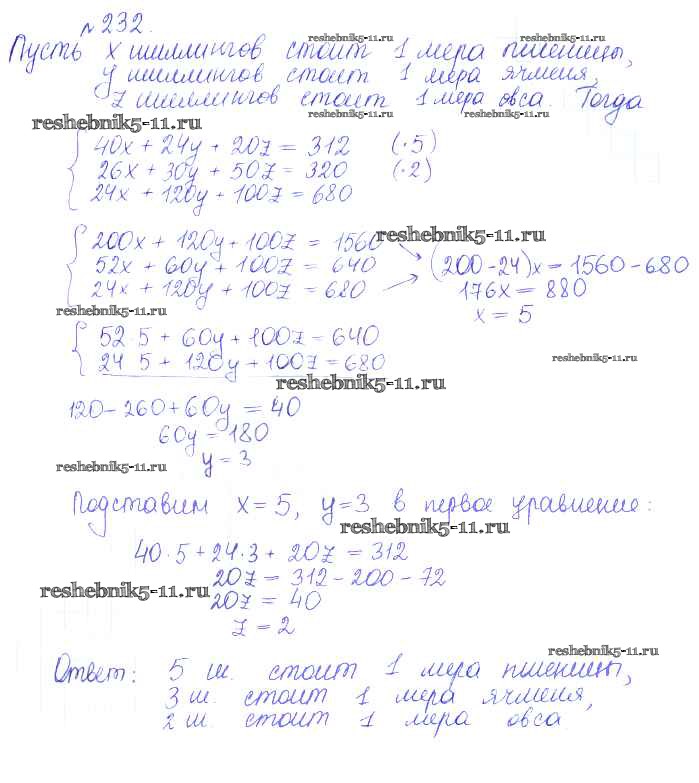 №232.
reshebnik5-11.ru reshebnik5-11.ru
Пусть x шиллингов стоит 1 мера пшеницы,
y шиллингов стоит 1 мера ячменя,
z шиллингов стоит 1 мера овса. Тогда
reshebnik5-11.ru reshebnik5-11.ru
reshebnik5-11.ru
40x + 24y + 20z = 312 (·5)
26x + 30y + 50z = 320 (·2)
24x + 120y + 100z = 680
reshebnik5-11.ru
200x + 120y + 100z = 1560
52x + 60y + 100z = 640 (200-24)x = 1560-680
24x + 120y + 100z = 680 176x = 880
reshebnik5-11.ru x = 5
52·5 + 60y + 100z = 640
24·5 + 120y + 100z = 680 reshebnik5-11.ru
reshebnik5-11.ru
120 - 260 + 60y = 40
60y = 180
reshebnik5-11.ru y = 3
Подставим x=5, y=3 в первое уравнение:
reshebnik5-11.ru
40·5 + 24·3 + 20z = 312
20z = 312 - 200 - 72
reshebnik5-11.ru 20z = 40
z = 2
reshebnik5-11.ru
Ответ: 5 ш. стоит 1 мера пшеницы,
3 ш. стоит 1 мера ячменя,
2 ш. стоит 1 мера овса.